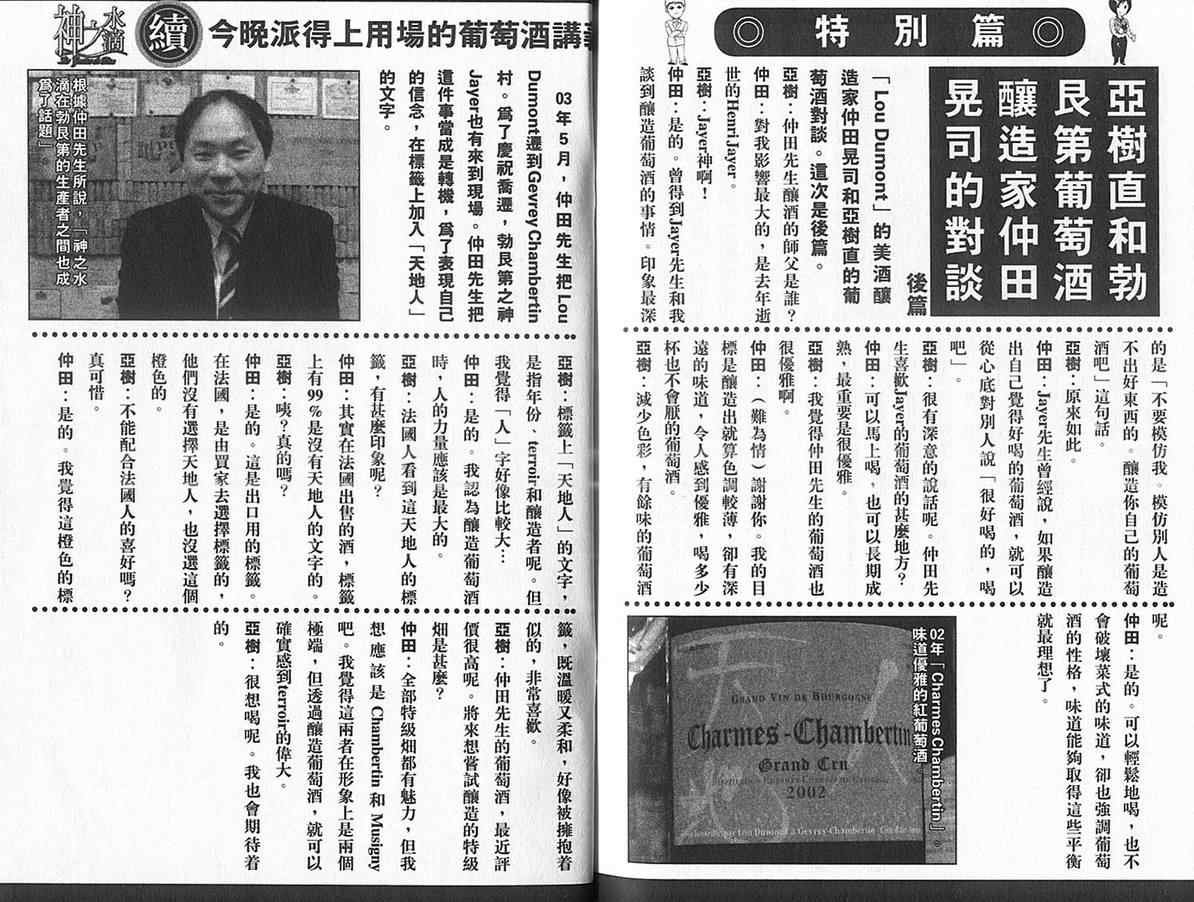 特別篇
亞樹直和勃
艮第葡萄酒
釀造家仲田
晃司的對談
後篇
「Lou Dumont」的美酒釀
造家仲田晃司和亞樹直的葡
萄酒對談。這次是後篇。
亞樹：仲田先生釀酒的師父是誰？
仲田：對我影響最大的，是去年逝
世的Henri Jayer。
亞樹：Jayer神啊！
仲田：是的。曾得到Jayer先生和我
談到釀造葡萄酒的事情。印象最深
的是「不要模仿我。模仿別人是造
不出好東西的。釀造你自己的葡萄
酒吧」這句話。
亞樹：原來如此。
仲田：Jayer先生曾經說，如果釀造
出自己覺得好喝的葡萄酒，就可以
從心底對別人說「很好喝的，喝
吧」。
亞樹：很有深意的說話呢。仲田先
生喜歡Jayer的葡萄酒的甚麼地方？
仲田：可以馬上喝，也可以長期成
熟，最重要是很優雅。
亞樹：我覺得仲田先生的葡萄酒也
很優雅啊。
仲田：（難為情）謝謝你。我的目
標是釀造出就算色調較薄，卻有深
遠的味道，令人感到優雅，喝多少
杯也不會厭的葡萄酒。
亞樹：減少色彩，有餘味的葡萄酒
呢。
仲田：是的。可以輕鬆地喝，也不
會破壞菜式的味道，卻也強調葡萄
酒的性格，味道能夠取得這些平衡
就最理想了。
02年「Charmes Chambertin」。
味道優雅的紅葡萄酒
天地人
GRAND VIN DE BOURGOGNE
Charmes-Chambertin
Grand Cru
2002
神之水滴
續
今晚派得上用場的葡萄酒講義
03年5月，仲田先生把Lou
Dumont遷到Gevrey Chambertin
村。為了慶祝喬遷，勃艮第之神
Jayer也有來到現場。仲田先生把
這件事當成是轉機，為了表現自己
的信念，在標籤上加入「天地人」
的文字。
根據仲田先生所說，「神之水
滴在勃艮第的生產者之間也成
為了話題」。
亞樹：標籤上「天地人」的文字，
是指年份、terroir和釀造者呢。但
我覺得「人」字好像比較大…
仲田：是的。我認為釀造葡萄酒
時，人的力量應該是最大的。
亞樹：法國人看到這天地人的標
籤，有甚麼印象呢？
仲田：其實在法國出售的酒，標籤
上有99%是沒有天地人的文字的。
亞樹：咦？真的嗎？
仲田：是的。這是出口用的標籤。
在法國，是由買家去選擇標籤的，
他們沒有選擇天地人，也沒選這個
橙色的。
亞樹：不能配合法國人的喜好嗎？
真可惜。
仲田：是的。我覺得這橙色的標
籤，既溫暖又柔和，好像被擁抱着
似的，非常喜歡。
亞樹：仲田先生的葡萄酒，最近評
價很高呢。將來想嘗試釀造的特級
畑是甚麼？
仲田：全部特級畑都有魅力，但我
想應該是Chambertin和Musigny
吧。我覺得這兩者在形象上是兩個
極端，但透過釀造葡萄酒，就可以
確實感到terroir的偉大。
亞樹：很想喝呢。我也會期待着
的。